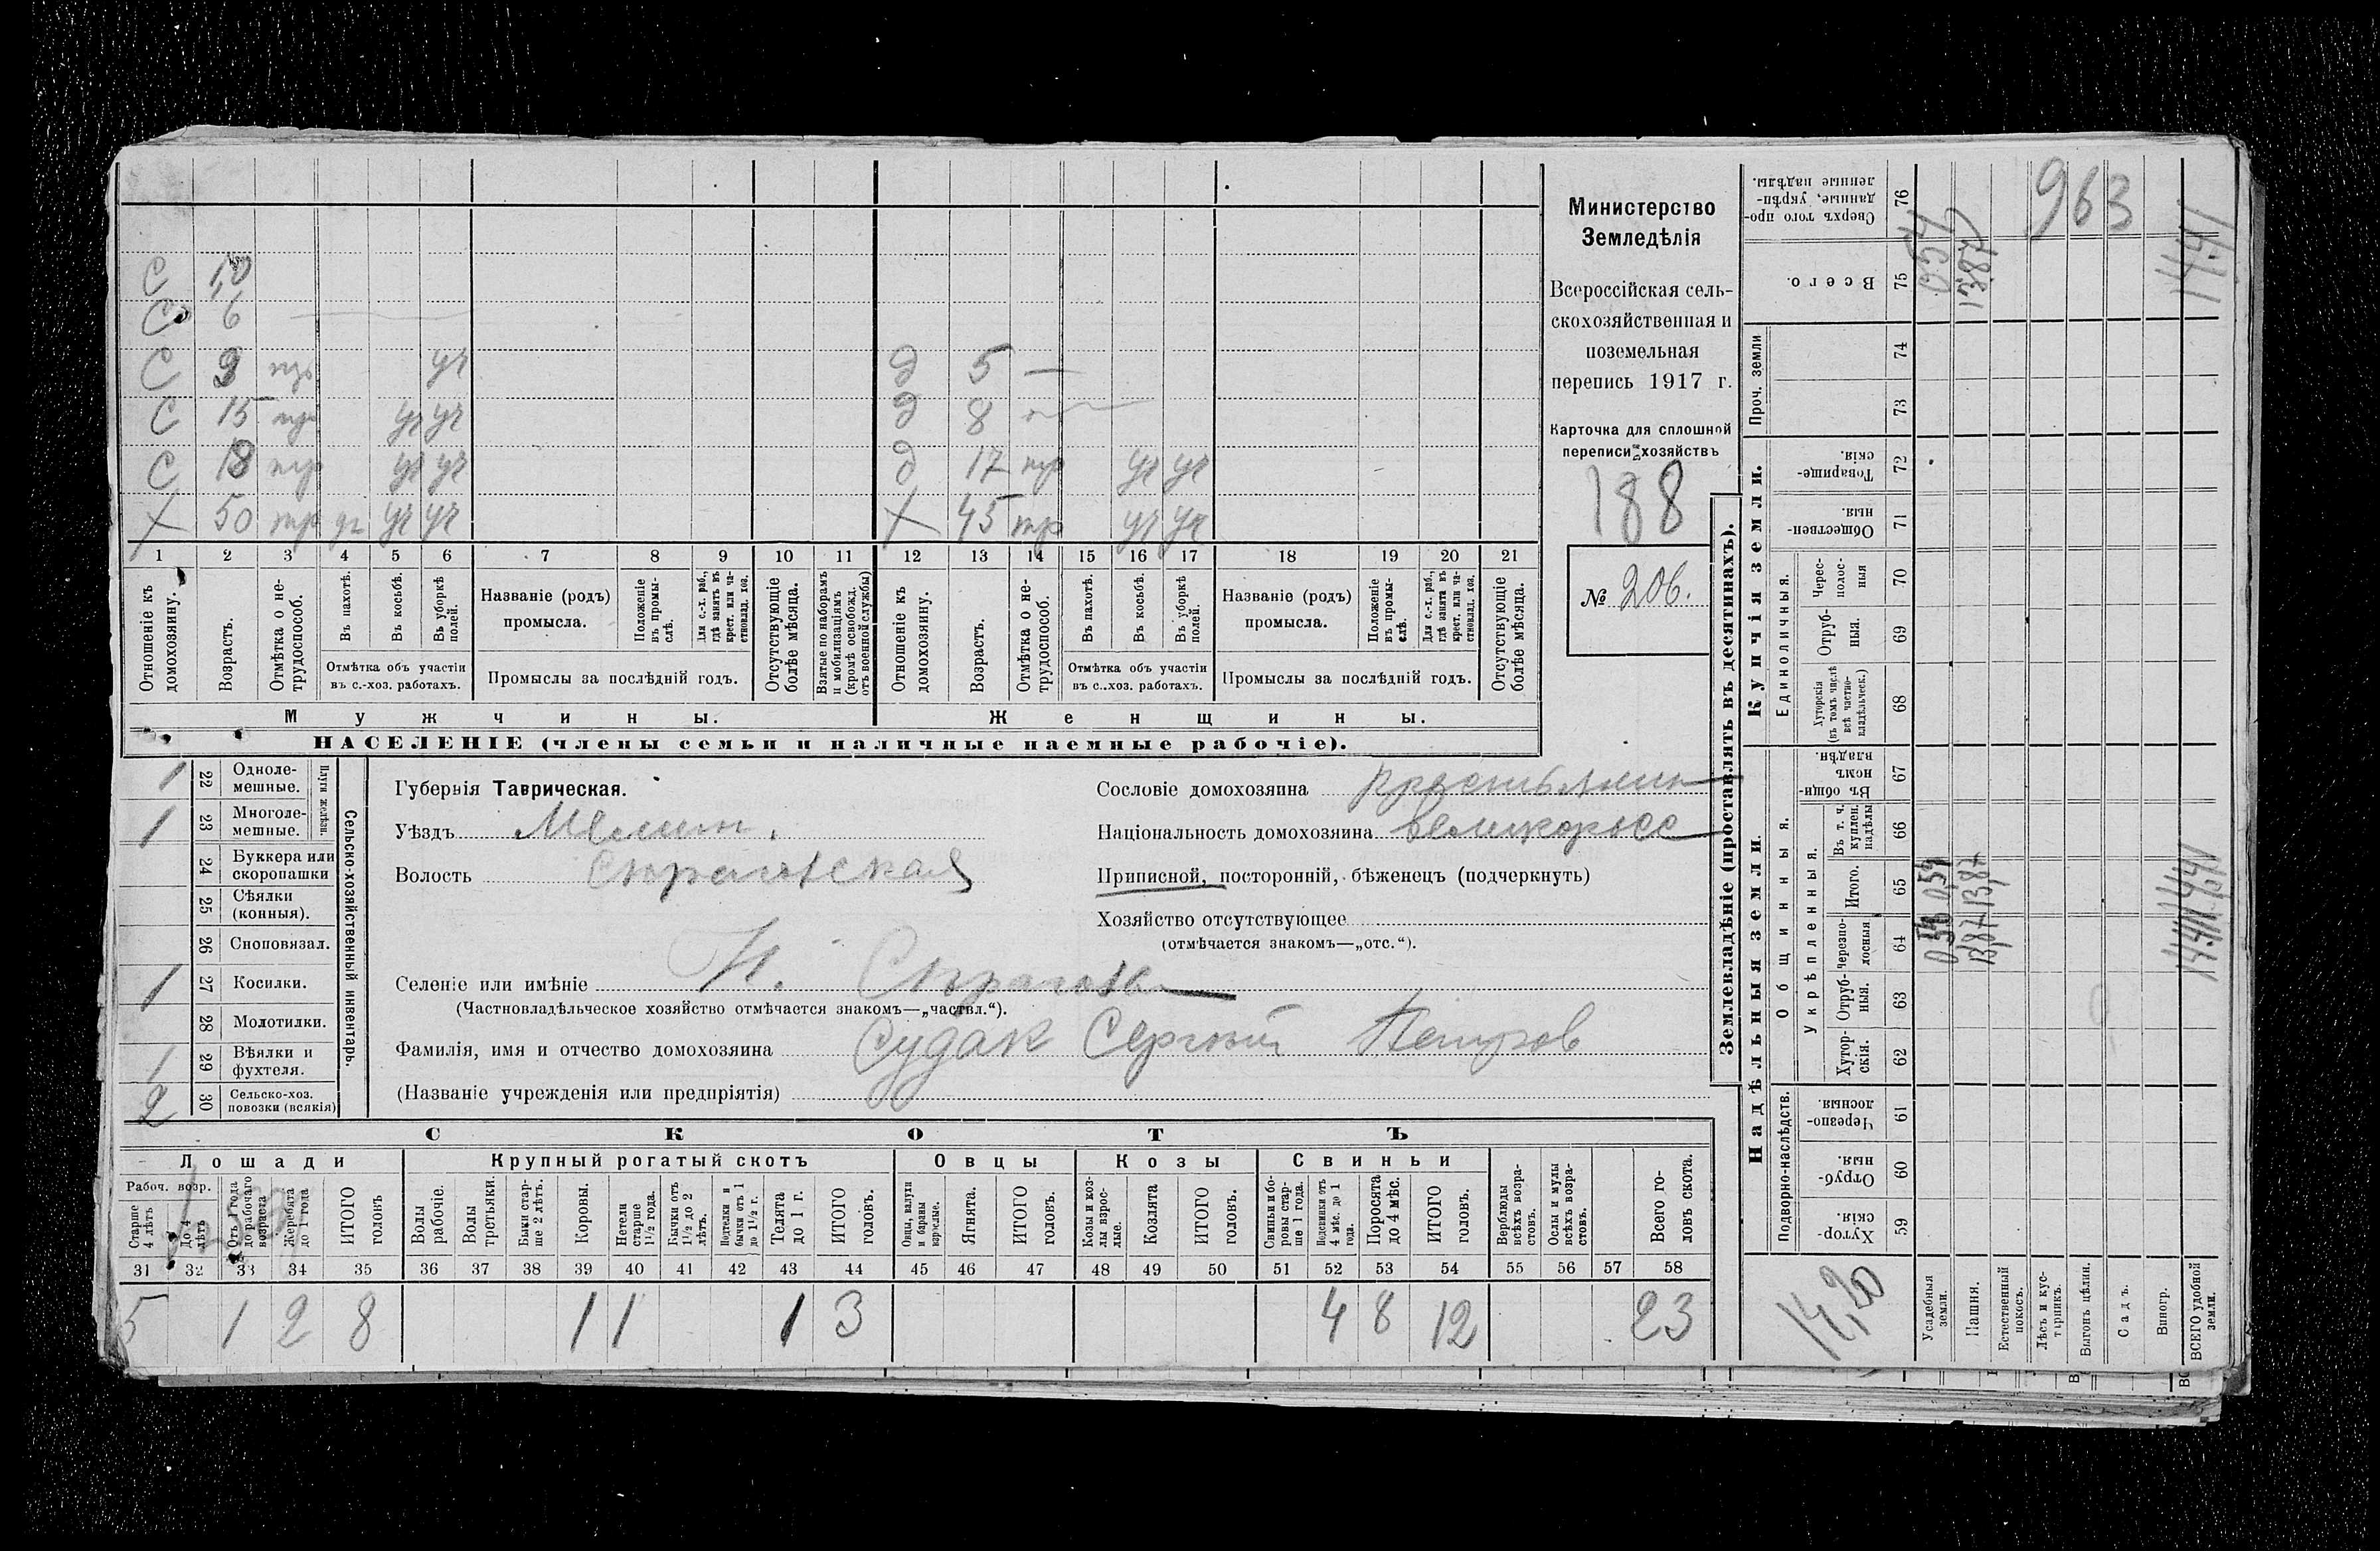 С 10
С 6
С 9 тр уч д 5 —
С 15 тр уч уч д 8
С 18 тр уч уч д 17 тр уч уч
Х 50 тр уч уч уч Х 45 тр уч уч
1 2 3 4 5 6 7 8 9 10 11 12 13 14 15 16 17 18 19 20 21
Отношеніе къ домохозяину.
Возрастъ.
Отмѣтка о не-
трудоспособ.
Въ пахотѣ.
Въ косьбѣ.
Въ уборкѣ
полей.
Отмѣтка объ участіи
въ с.-хоз. работахъ.
Названіе (родъ)
промысла.
Положеніе
въ промы-
слѣ.
Для с.-х. раб.,
гдѣ занятъ въ
крест. или ча-
стновлад. хоз.
Промыслы за послѣдній годъ.
Отсутствующіе
болѣе мѣсяца.
Взятые по наборамъ
и мобилизаціямъ
(кромѣ освобожд.
отъ военной службы)
Отношеніе къ
домохозяину.
Возрастъ.
Отмѣтка о не-
трудоспособ.
Въ пахотѣ.
Въ косьбѣ.
Въ уборкѣ
полей.
Отмѣтка объ участіи
въ с.-хоз. работахъ.
Названіе (родъ)
промысла.
Положеніе
въ промы-
слѣ.
Для с.-х. раб.,
гдѣ занята въ
крест. или ча-
стновлад. хоз.
Промыслы за послѣдній годъ.
Отсутствующіе
болѣе мѣсяца.
Мужчины. Женщины.
НАСЕЛЕНІЕ (члены семьи и наличные наемные рабочіе).
Министерство
Земледѣлія
Всероссійская сель-
скохозяйственная и
поземельная
перепись 1917 г.
Карточка для сплошной
переписи хозяйствъ
188
№ 206.
Сельско-хозяйственный инвентарь.
Плуги желѣзн.
1 22 Одноле-
мешные.
1 23 Многоле-
мешные.
24 Буккера или
скоропашки
25 Сѣялки
(конныя).
26 Сноповязал.
1 27 Косилки.
28 Молотилки.
1 29 Вѣялки и
фухтеля.
2 30 Сельско-хоз.
повозки (всякія)
Губернія Таврическая.
Уѣздъ Мелит.
Волость
Селеніе или имѣніе Н.
(Частновладѣльческое хозяйство отмѣчается знакомъ—„частвл.“).
Фамилія, имя и отчество домохозяина Судак Сергѣй Петров
(Названіе учрежденія или предпріятія)
Сословіе домохозяина крестьянин
Національность домохозяина великоросс
Приписной, посторонній, бѣженецъ (подчеркнуть)
Хозяйство отсутствующее
(отмѣчается знакомъ—„отс.“).
СКОТЪ
Лошади Крупный рогатый скотъ Овцы Козы Свиньи
Рабоч. возр.
Старше
4 лѣтъ
До 4
лѣтъ
Отъ 1 года
до рабочаго
возраста
Жеребята
до 1 года
ИТОГО
головъ
Волы
рабочіе.
Волы
третьяки.
Быки стар-
ше 2 лѣтъ.
Коровы.
Нетели
старше
1½ года.
Бычки отъ
1½ до 2
лѣтъ.
Подтелки и
бычки отъ 1
до 1½ г.
Телята
до 1 г.
ИТОГО
головъ.
Овцы, валухи
и бараны
взрослые.
Ягнята.
ИТОГО
головъ.
Козы и коз-
лы взрос-
лые.
Козлята
ИТОГО
головъ.
Свиньи и бо-
ровы стар-
ше 1 года.
Подсвинки отъ
4 мѣс. до 1
года.
Поросята
до 4 мѣс.
ИТОГО
головъ.
Верблюды
всѣхъ возра-
стовъ.
Ослы и мулы
всѣхъ возра-
стовъ.
Всего го-
ловъ скота.
31 32 33 34 35 36 37 38 39 40 41 42 43 44 45 46 47 48 49 50 51 52 53 54 55 56 57 58
5 1 2 8 1 1 1 3 4 8 12 23
Землевладѣніе (проставлять въ десятинахъ).
Купчія земли.
Надѣльныя земли.
Проч. земли
Единоличныя.
Общинныя.
Укрѣпленныя.
Подворно-наслѣдств.
Сверхъ того про-
данные, укрѣп-
ленные надѣлы.
76
Всего.
75
74
73
Товарище-
скія.
72
Обществен-
ныя.
71
Черес-
полос-
ныя
70
Отруб-
ныя.
69
Хуторскія
(въ томъ числѣ
всѣ частно-
владѣльческ.)
68
Въ общи-
номъ
владѣн.
67
Въ т. ч.
куплен.
надѣлы
66
Итого.
65
Черезпо-
лосныя
64
Отруб-
ныя.
63
Хутор-
скія.
62
Черезпо-
лосныя.
61
Отруб-
ныя.
60
Хутор-
скія.
59
963
0,54
13,87
14,41
14,20
Усадебныя
земли.
Пашня.
Естественный
покосъ.
Лѣсъ и кус-
тарникъ.
Выгонъ цѣлин.
Садъ.
Виногр.
ВСЕГО удобной
земли.